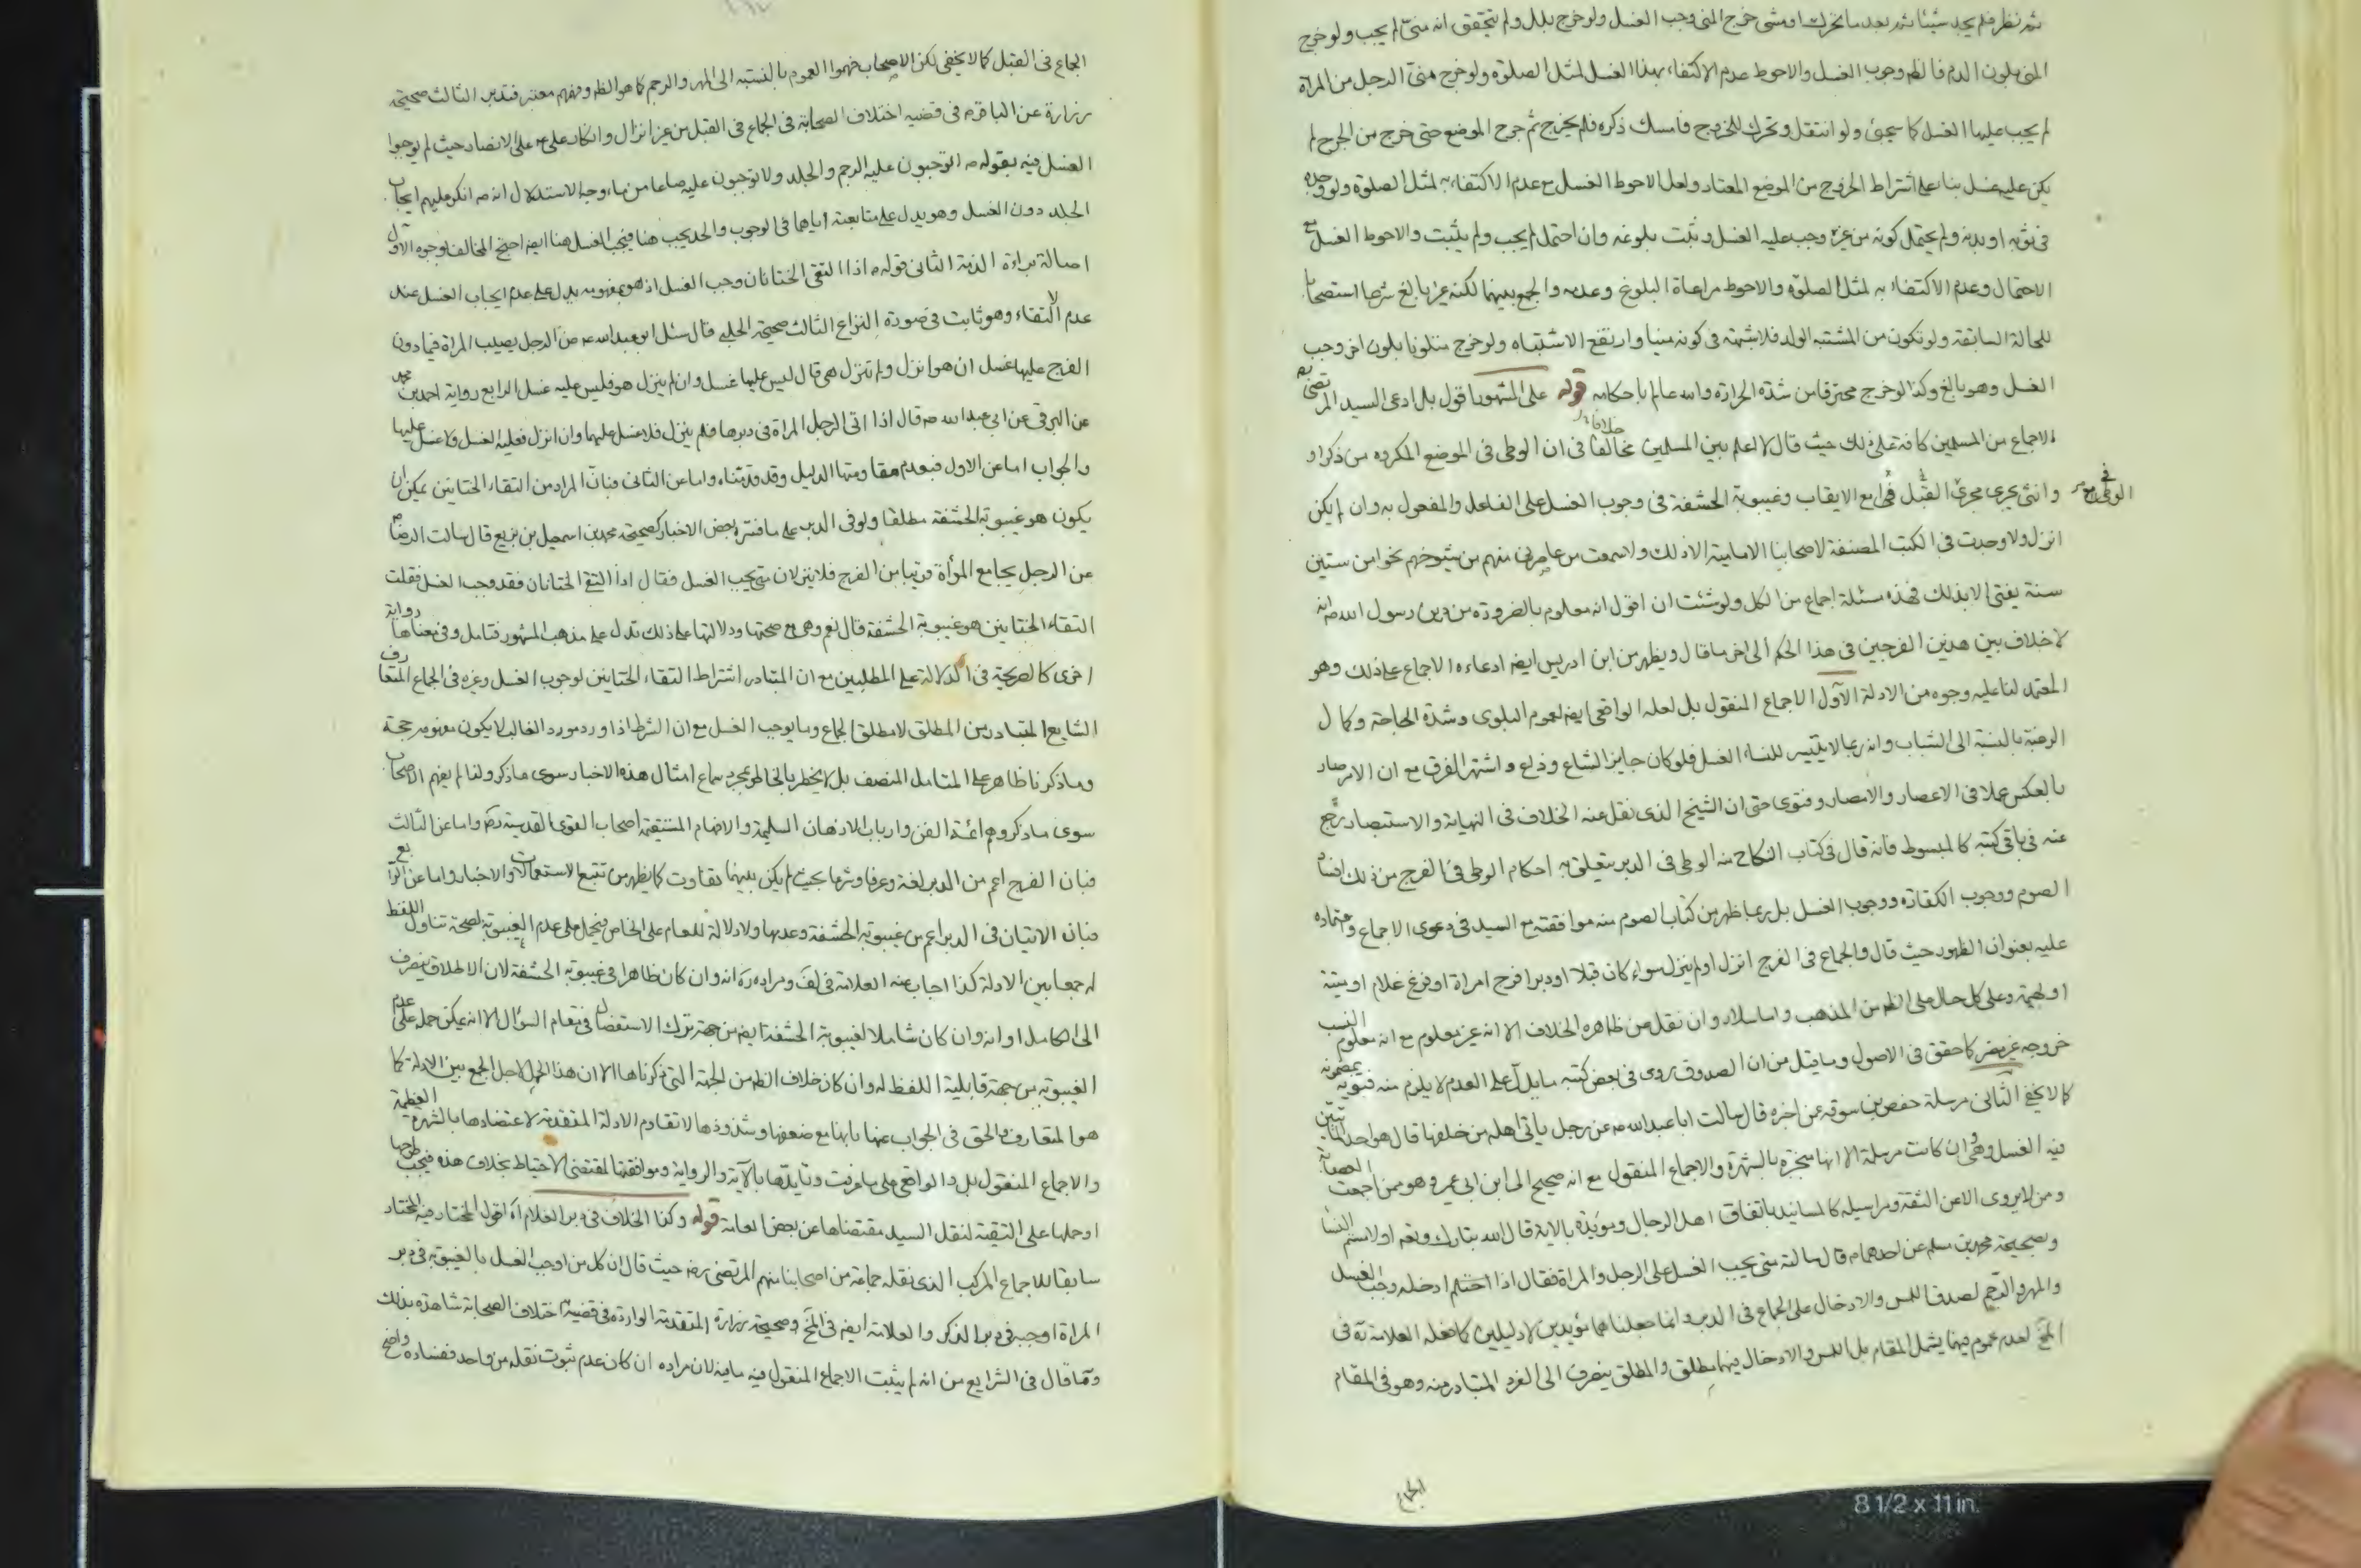 ثم نظر فلم يجد شيئا ثم بعد ما تحرك او مشى خرج المنى وجب الغسل ولو خرج بلل ولم يتحقق انه منى لم يجب ولو خرج
المنى بلون الدم فالظ وجوب الغسل والاحوط عدم الاكتفاء بهذا الغسل لمثل الصلوة ولو خرج منى الرجل من المراة
لم يجب عليها الغسل كما سيجئ ولو انتقل وتحرك للخروج فامسك ذكره فلم يخرج ثم جرح الموضع حتى خرج من الجرح لم
يكن عليه غسل بناء على اشتراط الخروج من الموضع المعتاد ولعل الاحوط الغسل مع عدم الاكتفاء به لمثل الصلوة ولو وجده
فى ثوبه او بدنه ولم يحتمل كونه من غيره وجب عليه الغسل وثبت بلوغه وان احتمل لم يجب ولم يثبت والاحوط الغسل مع
الاحتمال وعدم الاكتفاء به لمثل الصلوة والاحوط مراعاة البلوغ وعدمه والجمع بينهما لكنه غير بالغ شرعا استصحابا
للحالة السابقة ولو تكون من المشتبه الولد فلا شبهة فى كونه منيا وارتفع الاشتباه ولو خرج متلونا بلون اخر وجب
الغسل وهو بالغ وكذا لو خرج محترقا من شدة الحرارة والله عالم باحكامه قوله على المشهور اقول بل ادعى السيد المرتضى رضه
الاجماع من المسلمين كافة على ذلك حيث قال لا اعلم بين المسلمين مخالفا خلافا فى ان الوطى فى الموضع المكروه من ذكر او
وانثى يجرى مجرى القبل مع الايقاب وغيبوبة الحشفة فى وجوب الغسل على الفاعل والمفعول به وان لم يكن
الوطى فى
انزل ولا وجدت فى الكتب المصنفة لاصحابنا الامامية الا ذلك ولا سمعت من عاصرنى منهم من شيوخهم نحوا من ستين
سنة يفتى الا بذلك فهذه مسئلة اجماع من الكل ولو شئت ان اقول انه معلوم بالضرورة من دين رسول الله ص انه
لا خلاف بين هذين الفرجين فى هذا الحكم الى اخر ما قال ويظهر من ابن ادريس ايضا ادعاءه الاجماع على ذلك وهو
المعتمد لنا عليه وجوه من الادلة الاول الاجماع المنقول بل لعله الواقعى ايضا لعموم البلوى وشدة الحاجة وكمال
الرغبة بالنسبة الى الشباب وانه ربما لا يتيسر للنساء الغسل فلو كان جايزا لشاع وذاع واشتهر الفرق مع ان الامر صار
بالعكس عملا فى الاعصار والامصار وفتوى حتى ان الشيخ الذى نقل عنه الخلاف فى النهاية والاستبصار رجع
عنه فى باقى كتبه كالمبسوط فانه قال فى كتاب النكاح منه الوطى فى الدبر يتعلق به احكام الوطى فى الفرج من ذلك افساد
الصوم ووجوب الكفارة ووجوب الغسل بل ربما ظهر من كتاب الصوم منه موافقته مع السيد فى دعوى الاجماع واعتماده
عليه بعنوان الظهور حيث قال والجماع فى الفرج انزل او لم ينزل سواء كان قبلا او دبرا فرج امراة او فرج غلام او ميتة
او بهيمة وعلى كل حال على الظ من المذهب واما سلار وان نقل من ظاهره الخلاف الا انه غير معلوم مع انه معلوم النسب
خروجه غير مضر كما حقق فى الاصول وما قيل من ان الصدوق روى فى بعض كتبه ما يدل على العدم لا يلزم منه فتويه بمضمونه
كما لا يخفى الثانى مرسلة حفص بن سوقة عن اخبره قال سالت ابا عبد الله عه عن رجل ياتى اهله من خلفها قال هو احد المأتيين
فيه الغسل وهى وان كانت مرسلة الا انها منجبرة بالشهرة والاجماع المنقول مع انه صحيح الى ابن ابى عمير وهو ممن اجمعت العصابة
ومن لا يروى الا عن الثقة ومراسيله كالمسانيد باتفاق اهل الرجال ومويدة بالاية قال الله تبارك وتعالى او لامستم النساء
وبصحيحة محمد بن مسلم عن احدهما عه قال سالته متى يجب الغسل على الرجل والمراة فقال اذا ادخله وجب الغسل
والمهر والرجم لصدق اللمس والادخال على الجماع فى الدبر وانما جعلناهما مؤيدين لا دليلين كما فعله العلامة ره فى
المخ لعدم عموم فيهما يشمل المقام بل اللمس والادخال فيهما مطلق والمطلق ينصرف الى الفرد المتبادر منه وهو فى المقام
الجماع
الجماع فى القبل كما لا يخفى لكن الاصحاب فهموا العموم بالنسبة الى المهر والرجم كما هو الظ وفهمهم معتبر فتدبر الثالث صحيحة
زرارة عن الباقر عه فى قضيه اختلاف الصحابة فى الجماع فى القبل من غير انزال وانكار على عه على الانصار حيث لم يوجبوا
الغسل فيه بقوله عه اتوجبون عليه الرجم والجلد ولا توجبون عليه صاعا من ماء وجه الاستدلال انه عه انكر عليهم ايجاب
الجلد دون الغسل وهو يدل على متابعة اياهما فى الوجوب والحد يجب هنا فيجب الغسل هنا ايضا احتج المخالف بوجوه الاول
اصالة براءة الذمة الثانى قوله عه اذا التقى الختانان وجب الغسل اذ هو بمفهومه يدل على عدم ايجاب الغسل عند
عدم الالتقاء وهو ثابت فى صورة النزاع الثالث صحيحة الحلبى قال سئل ابو عبد الله عه عن الرجل يصيب المراة فيما دون
الفرج عليها غسل ان هو انزل ولم تنزل هى قال ليس عليها غسل وان لم ينزل هو فليس عليه غسل الرابع رواية احمد بن محمد
عن البرقى عن ابى عبد الله عه قال اذا اتى الرجل المراة فى دبرها فلم ينزل فلا غسل عليهما وان انزل فعليه الغسل ولا غسل عليها
والجواب اما عن الاول فبعدم مقاومتها الدليل وقد قدمناه واما عن الثانى فبان المراد من التقاء الختانين يمكن ان
يكون هو غيبوبة الحشفة مطلقا ولو فى الدبر على ما فسره بعض الاخبار كصحيحة محمد بن اسمعيل بن بزيع قال سالت الرضا عه
عن الرجل يجامع المرأة قريبا من الفرج فلا ينزلان متى يجب الغسل فقال اذا التقى الختانان فقد وجب الغسل فقلت
التقاء الختانين هو غيبوبة الحشفة قال نعم وهى مع صحتها ودلالتها على ذلك تدل على مذهب المشهور فتامل وفى معناها رواية
اخرى كالصريحة فى الدلالة على المطلبين مع ان المتبادر اشتراط التقاء الختانين لوجوب الغسل وغيره فى الجماع المتعارف
الشايع المتبادر من المطلق لا مطلق الجماع وما يوجب الغسل مع ان الشرط اذا ورد مورد الغالب لا يكون مفهومه حجة
وما ذكرنا ظاهر على المتامل المنصف بل لا يخطر بالخاطر بمجرد سماع امثال هذه الاخبار سوى ما ذكر ولذا لم يفهم الاصحاب
سوى ما ذكر وهم ائمة الفن وارباب الاذهان السليمة والافهام المستقيمة اصحاب القوى القدسية رضه واما عن الثالث
فبان الفرج اعم من الدبر لغة وعرفا وشرعا بحيث لم يكن بينهما تفاوت كما يظهر من تتبع الاستعمالات والاخبار واما عن الرابع
فبان الاتيان فى الدبر اعم من غيبوبة الحشفة وعدمها ولا دلالة للعام على الخاص فيحمل على عدم الغيبوبة لصحة تناول اللفظ
له جمعا بين الادلة كذا اجاب عنه العلامة فى لف ومراده ره انه وان كان ظاهرا فى غيبوبة الحشفة لان الاطلاق ينصرف
الى الكامل او انه وان كان شاملا لغيبوبة الحشفة ايضا من جهة ترك الاستفصال فى مقام السؤال الا انه يمكن حمله على عدم
الغيبوبة من جهة قابلية اللفظ له وان كان خلاف الظ من الجهة التى ذكرناها الا ان هذا الحمل لاجل الجمع بين الادلة كما
هو المتعارف والحق فى الجواب عنها بانها مع ضعفها وشذوذها لا تقاوم الادلة المتقدمة لاعتضادها بالشهرة العظيمة
والاجماع المنقول بل والواقعى على ما عرفت وتايدها بالآية والرواية وموافقتها لمقتضى الاحتياط بخلاف هذه فيجب طرحها
او حملها على التقية لنقل السيد مقتضاها عن بعض العامة قوله وكذا الخلاف فى دبر الغلام اه اقول المختار فيه المختار
سابقا للاجماع المركب الذى نقله جماعة من اصحابنا منهم المرتضى رضه حيث قال ان كل من اوجب الغسل بالغيبوبة فى دبر
المراة اوجبه فى دبر الذكر والعلامة ايضا فى المخ وصحيحة زرارة المتقدمة الواردة فى قضية اختلاف الصحابة شاهدة بذلك
وما قال فى الشرايع من انه لم يثبت الاجماع المنقول فيه ما فيه لان مراده ان كان عدم ثبوت نقله من واحد ففساده واضح
8 1/2 x 11 in.